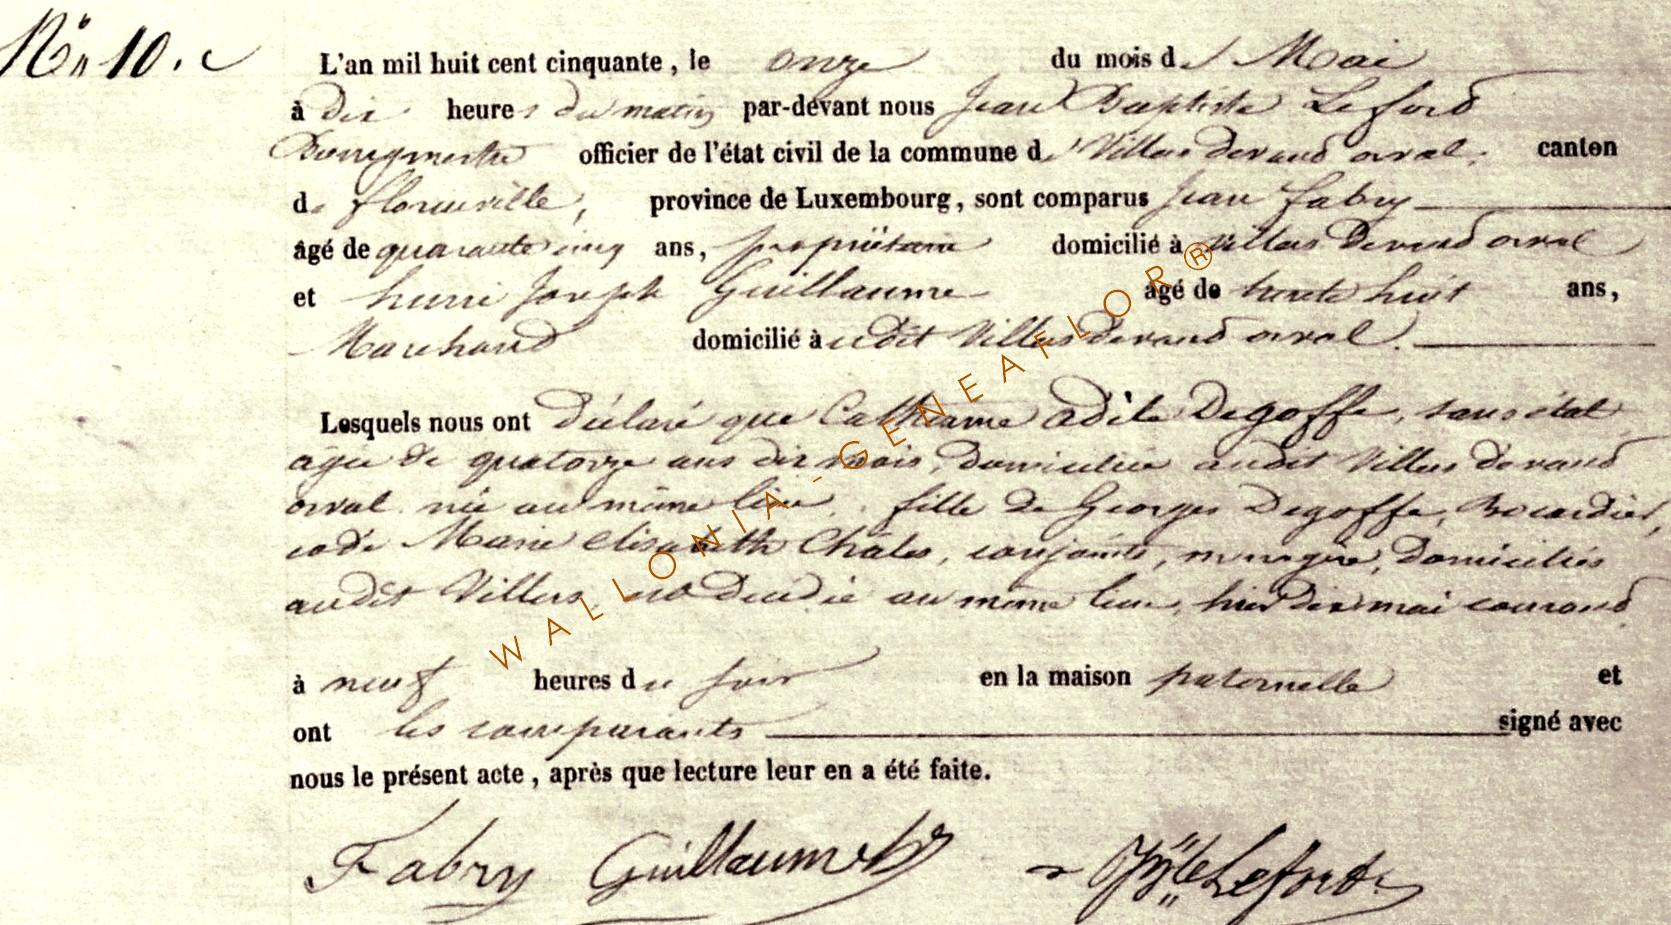 N° 10.
L'an mil huit cent cinquante, le onze du mois de Mai
à dix heures du matin par-devant nous Jean Baptiste Leford
Bourgmestre officier de l'état civil de la commune de Villers devand orval, canton
de florenville, province de Luxembourg, sont comparus Jean fabry
âgé de quarante cinq ans, propriétaire domicilié à villers devand orval
et henri Joseph Guillaume âgé de trente huit ans,
Marchand domicilié à udit Villers devand orval.
Lesquels nous ont déclaré que Catherine adile Degoffe, sans état
agée de quatorze ans dix mois, domiciliée audit Villers devand
orval née au même lieu, fille de Georges Degoffe, Bocardier,
et de Marie élisabeth Châles, conjoints, menagère, domiciliés
audit Villers, est décédée au même lieu, hier dix mai courand
à neuf heures du soir en la maison paternelle et
ont les comparants signé avec
nous le présent acte, après que lecture leur en a été faite.
Fabry Guillaume hj Jn Bte Lefort
WALLONIA-GENEAFLOR®